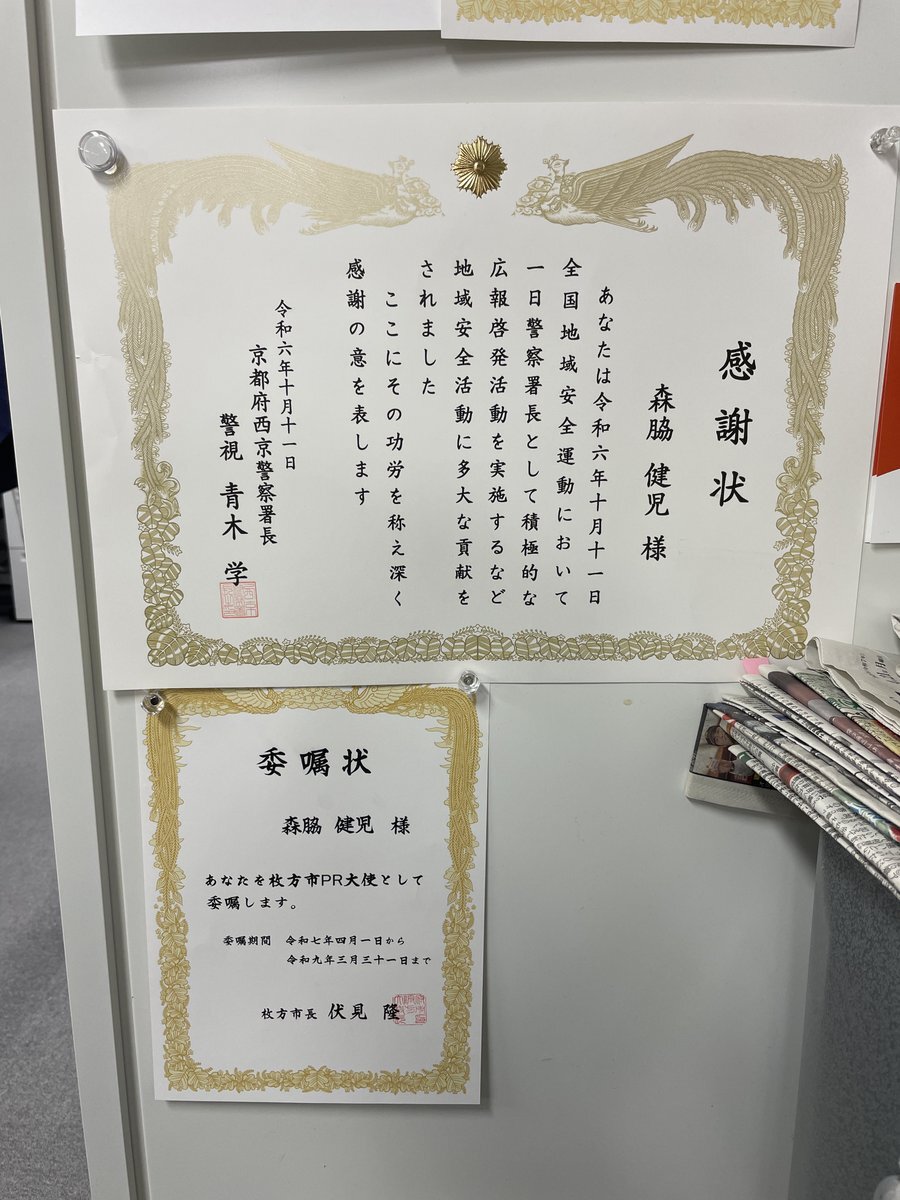 感謝状
森脇 健児 様
あなたは令和六年十月十一日
全国地域安全運動において
一日警察署長として積極的な
広報啓発活動を実施するなど
地域安全活動に多大な貢献を
されました
ここにその功労を称え深く
感謝の意を表します
令和六年十月十一日
京都府西京警察署長
警視 青木 学
委嘱状
森脇 健児 様
あなたを枚方市PR大使として
委嘱します。
委嘱期間 令和七年四月一日から
令和九年三月三十一日まで
枚方市長 伏見 隆